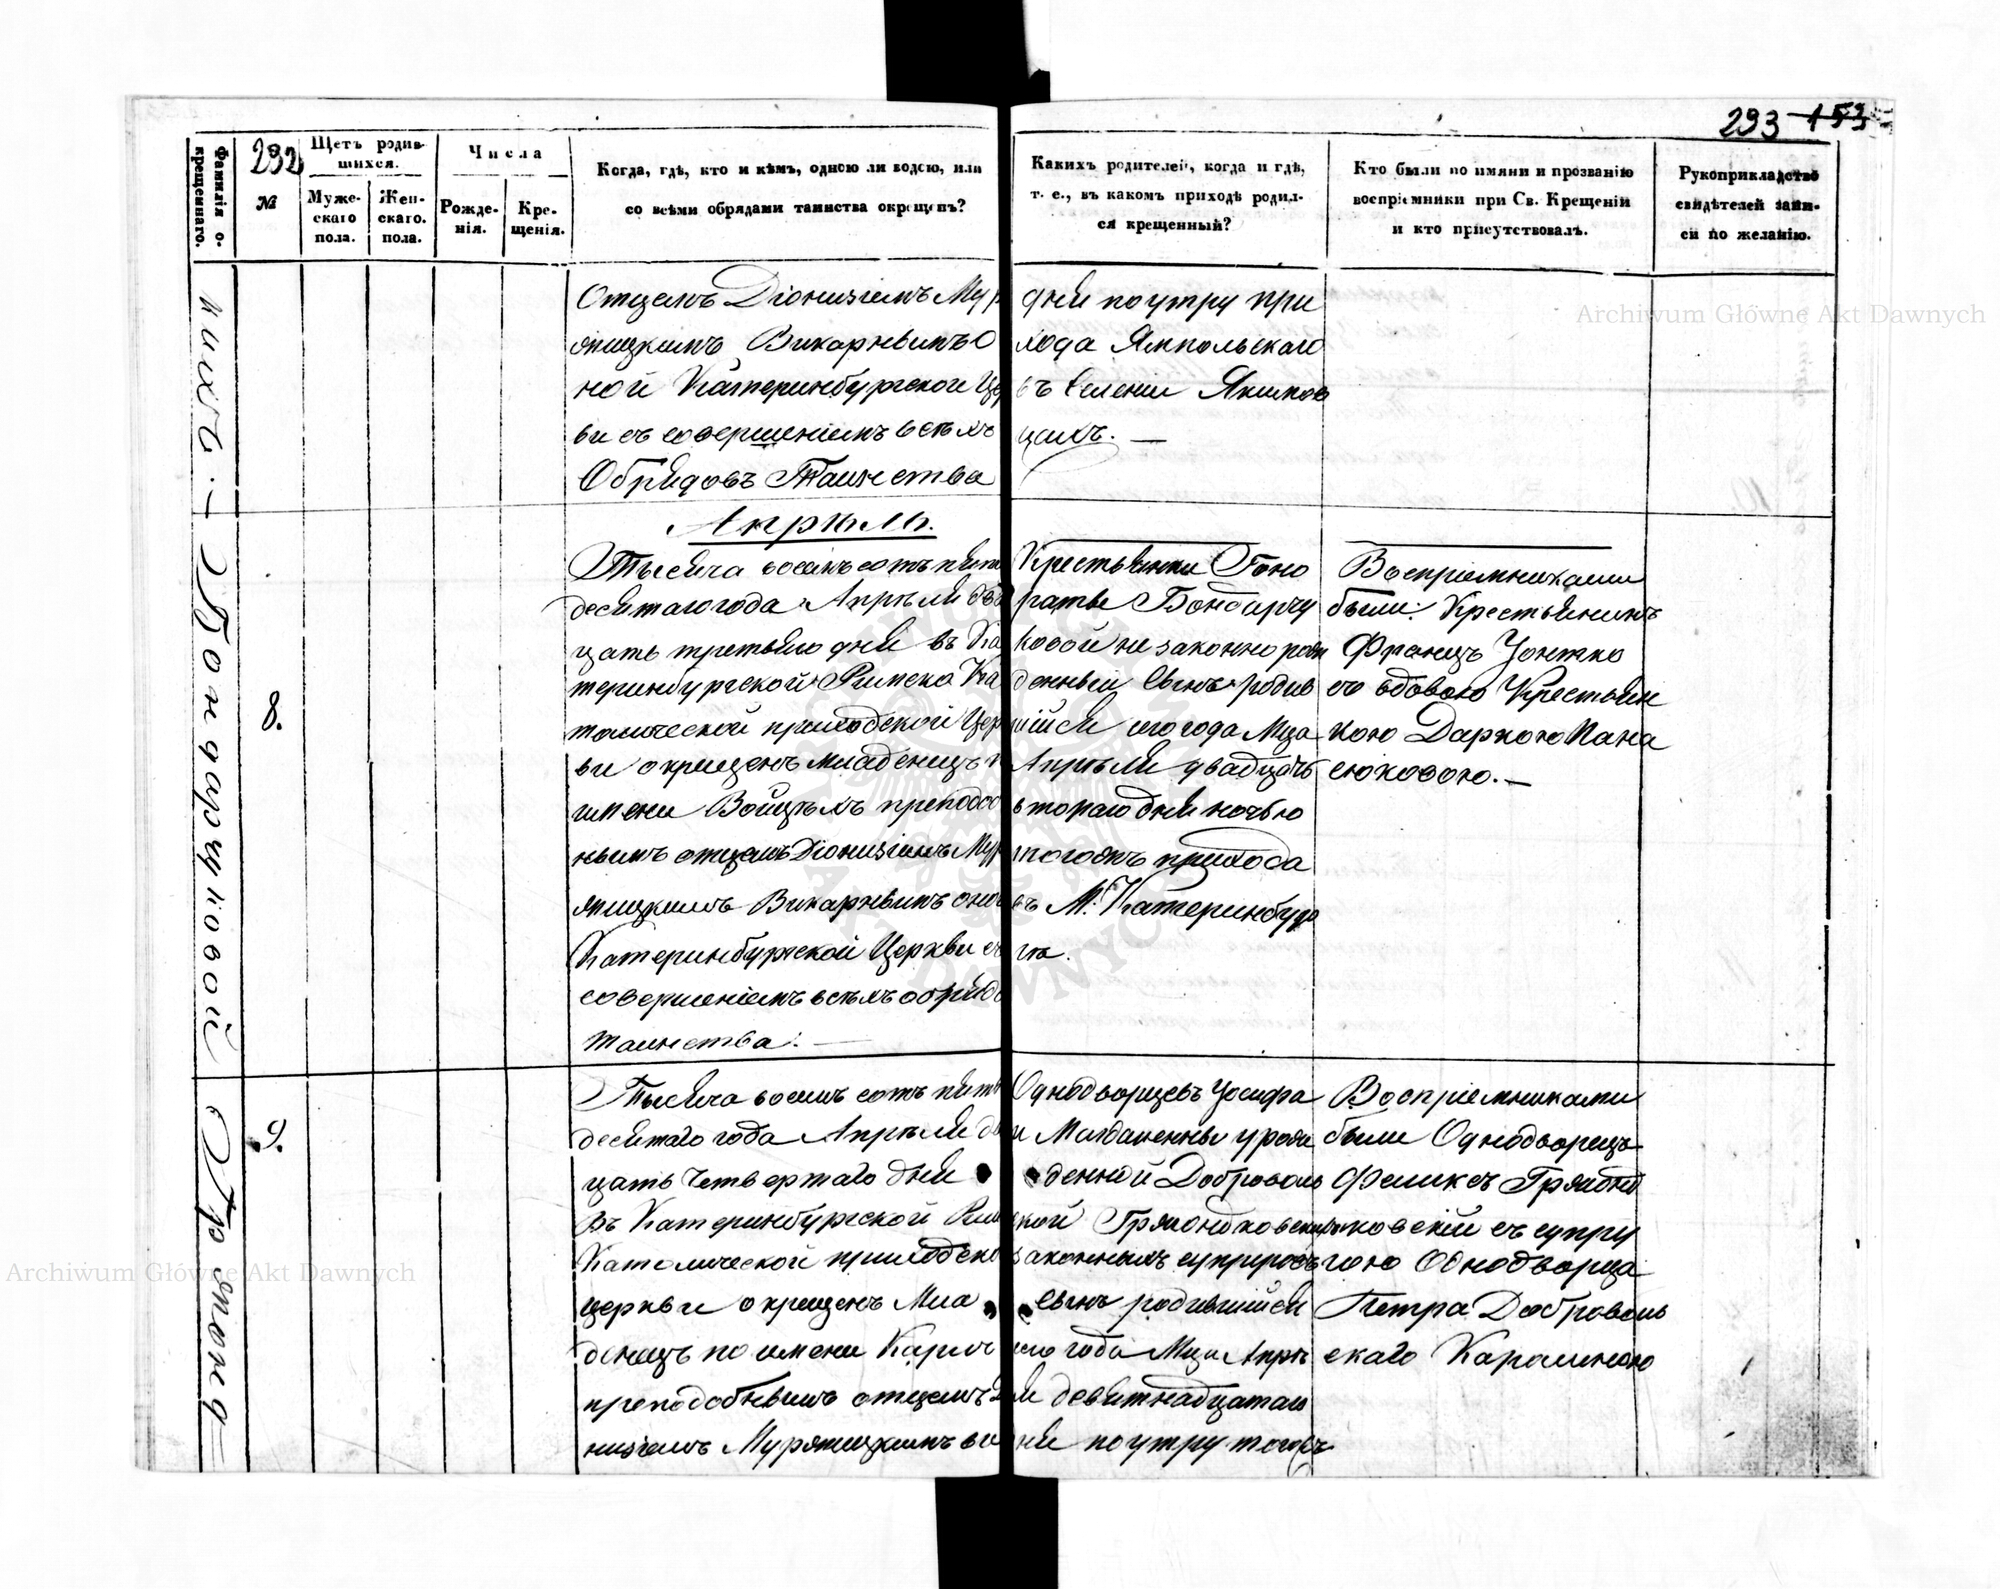 293 153
Фамилія о-
крещеннаго.
292
№
Щетъ родив-
шихся.
Муже-
скаго
пола.
Жен-
скаго.
пола.
Числа
Рожде-
нія.
Кре-
щенія.
Когда, гдѣ, кто и кѣмъ, одною ли водою, или
со всѣми обрядами таинства окрещенъ?
Какихъ родителей, когда и гдѣ,
т. е., въ какомъ приходѣ родил-
ся крещенный?
Кто были по имяни и прозванію
воспріемники при Св. Крещеніи
и кто присутствовалъ.
Рукоприкладство
свидѣтелей запи-
си по желанію.
Отцемъ Діонизіемъ Мур
Викарнымъ О
ной Катеринбургской Цер
ви съ совершеніемъ всѣхъ
Обрядовъ Таинства
дня поутру при
хода Ямпольскаго
въ Селеніи Якимов
цахъ. —
Апрѣль.
Бондарчуковой
8.
Тысяча восемь сотъ пять
десятаго года Апрѣля два
цать третьяго дня въ Ка
теринбургской Римско Ка
толической приходской Цер
ви окрещенъ младенецъ п
имени Войцѣхъ преподоб
нымъ отцемъ Діонизіемъ Мур
Викарнымъ оной
Катеринбургской Церкви съ
совершеніемъ всѣхъ обрядо
таинства. —
Крестьянки Гоно
раты Бондарчу
ковой не законно рож
денный Сынъ родив
шійся сего года Мца
Апрѣля двадцать
втораго дня ночью
тогожъ прихода
въ М. Катеринбур
гѣ.
Воспріемниками
были: Крестьянинъ
Францъ
съ вдовою Крестьян
кою Даркою Пана
сюковою. —
9.
Тысяча восемь сотъ пять
десятаго года Апрѣля два
цать Четвертаго дня
въ Катеринбургской Рим
Католической приходско
церкви окрещенъ Мла
денецъ по имени Карлъ
преподобнымъ отцемъ Д
низіемъ ви
Однодворцевъ Іосифа
и Магдалены урож
денной Доброволь
ской
законныхъ супруговъ
сынъ родившійся
сего года Мца Апрѣ
ля девятнадцатаго
дня поутру тогожъ
Воспріемниками
были Однодворецъ
Феликсъ
ковскій съ супру
гою Однодворца
Петра Доброволь
скаго Каролиною
Archiwum Główne Akt Dawnych
Archiwum Główne Akt Dawnych